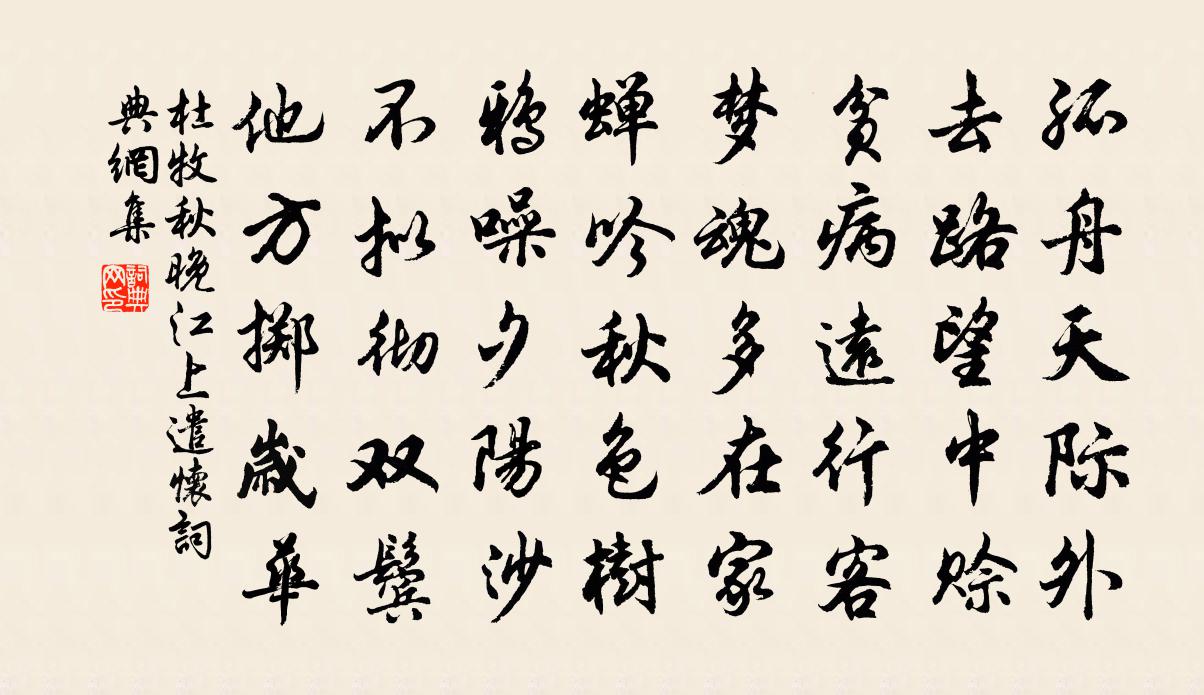 孤舟天际外
去路望中赊
贫病遠行客
梦魂多在家
蝉吟秋色樹
鸦噪夕陽沙
不拟彻双鬓
他方掷歲華
杜牧秋晚江上遣懷詞
典網集
詞典网印